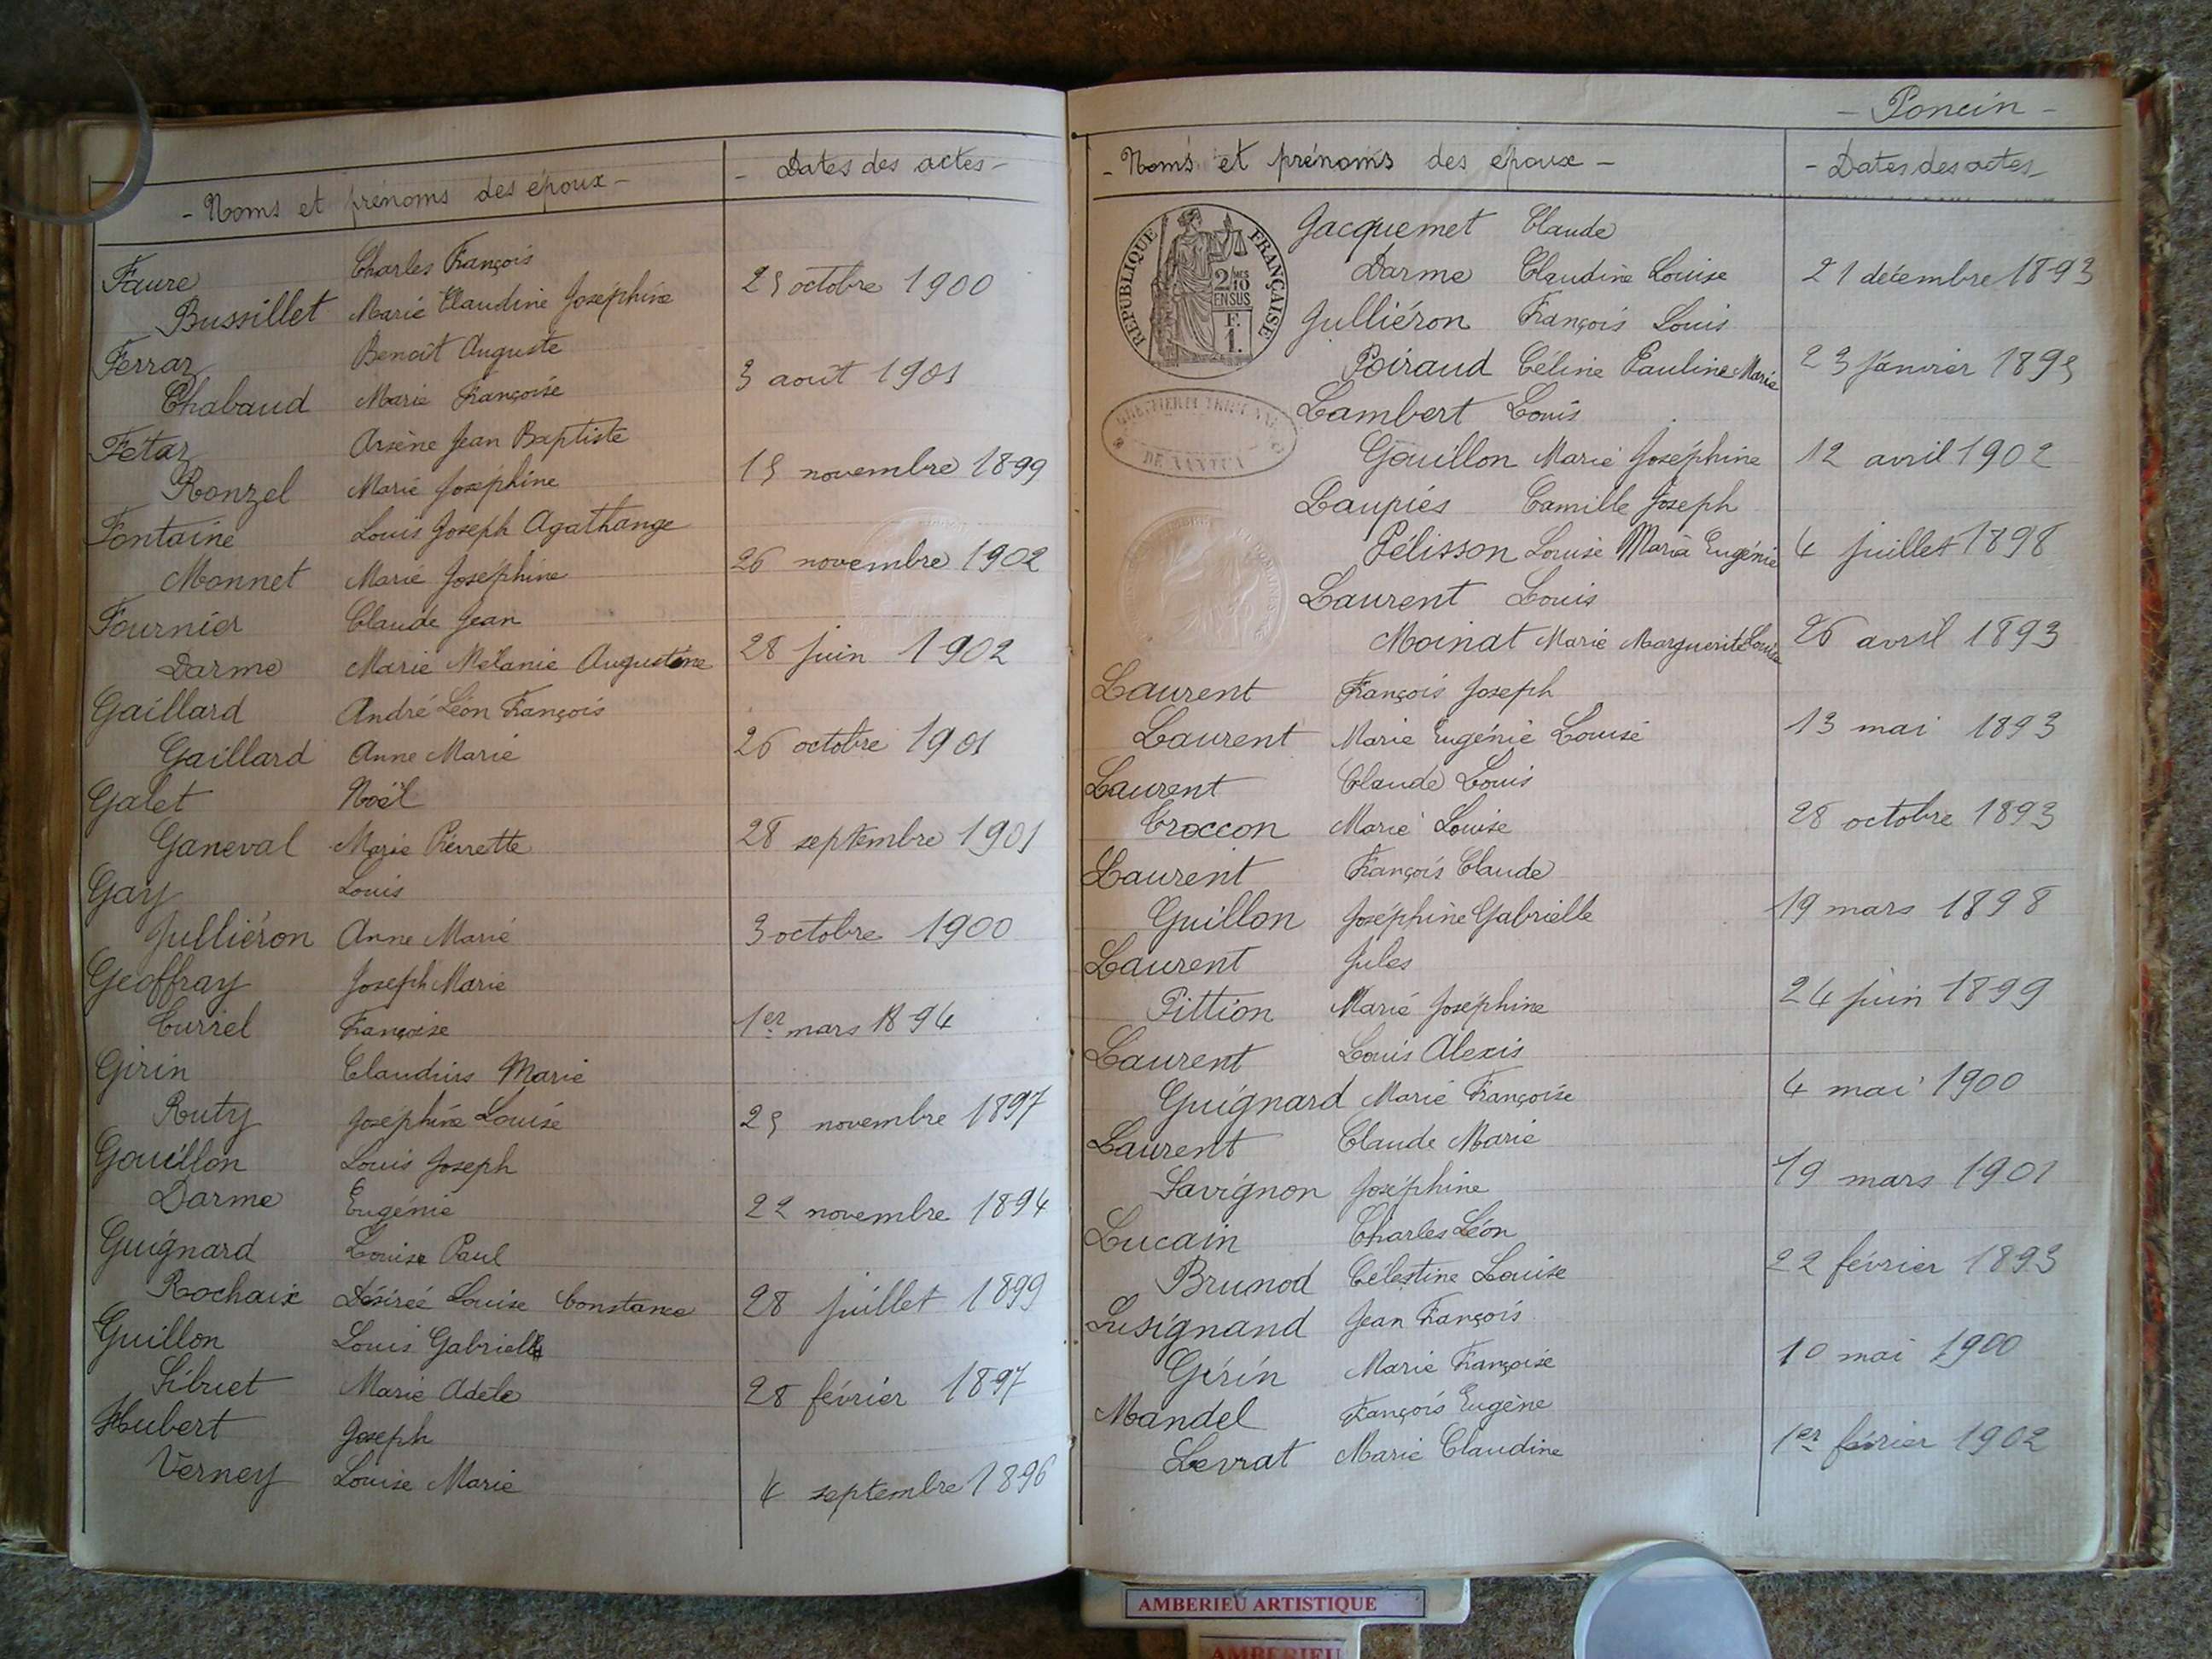 - Noms et prénoms des époux -
- Dates des actes -
Faure Charles François
Bussillet Marie Claudine Joséphine 25 octobre 1900
Ferraz Benoît Auguste
Chabaud Marie Françoise 3 août 1901
Fétaz Arsène Jean Baptiste
Ronzel Marie Joséphine 15 novembre 1899
Fontaine Louis Joseph Agathange
Monnet Marie Joséphine 26 novembre 1902
Fournier Claude Jean
Darme Marie Mélanie Augustine 28 juin 1902
Gaillard André Léon François
Gaillard Anne Marie 26 octobre 1901
Galet Noël
Ganeval Marie Pierrette 28 septembre 1901
Gay Louis
Julliéron Anne Marie 3 octobre 1900
Geoffray Joseph Marie
Curiel Françoise 1er mars 1894
Girin Claudius Marie
Ruty Joséphine Louise 25 novembre 1897
Gouillon Louis Joseph
Darme Eugénie 22 novembre 1894
Guignard Louise Paul
Rochaix Désirée Louise Constance 28 juillet 1899
Guillon Louis Gabriel
Sibuet Marie Adèle 28 février 1897
Hubert Joseph
Verney Louise Marie 4 septembre 1896
- Poncin -
- Noms et prénoms des époux -
- Dates des actes -
RÉPUBLIQUE FRANÇAISE
2/10 EN SUS
F. 1.
DE NANTUA
Jacquemet Claude
Darme Claudine Louise 21 décembre 1893
Julliéron François Louis
Poiraud Céline Pauline Marie 23 janvier 1895
Lambert Louis
Gouillon Marie Joséphine 12 avril 1902
Laupiés Camille Joseph
Pélisson Louise Maria Eugénie 4 juillet 1898
Laurent Louis
Moinat Marie Marguerite Louise 26 avril 1893
Laurent François Joseph
Laurent Marie Eugénie Louise 13 mai 1893
Laurent Claude Louis
Croccon Marie Louise 28 octobre 1893
Laurent François Claude
Guillon Joséphine Gabrielle 19 mars 1898
Laurent Jules
Pittion Marie Joséphine 24 juin 1899
Laurent Louis Alexis
Guignard Marie Françoise 4 mai 1900
Laurent Claude Marie
Savignon Joséphine 19 mars 1901
Lucain Charles Léon
Brunod Célestine Louise 22 février 1893
Lusignand Jean François
Girin Marie Françoise 10 mai 1900
Mandel François Eugène
Levrat Marie Claudine 1er février 1902
AMBERIEU ARTISTIQUE
AMBERIEU